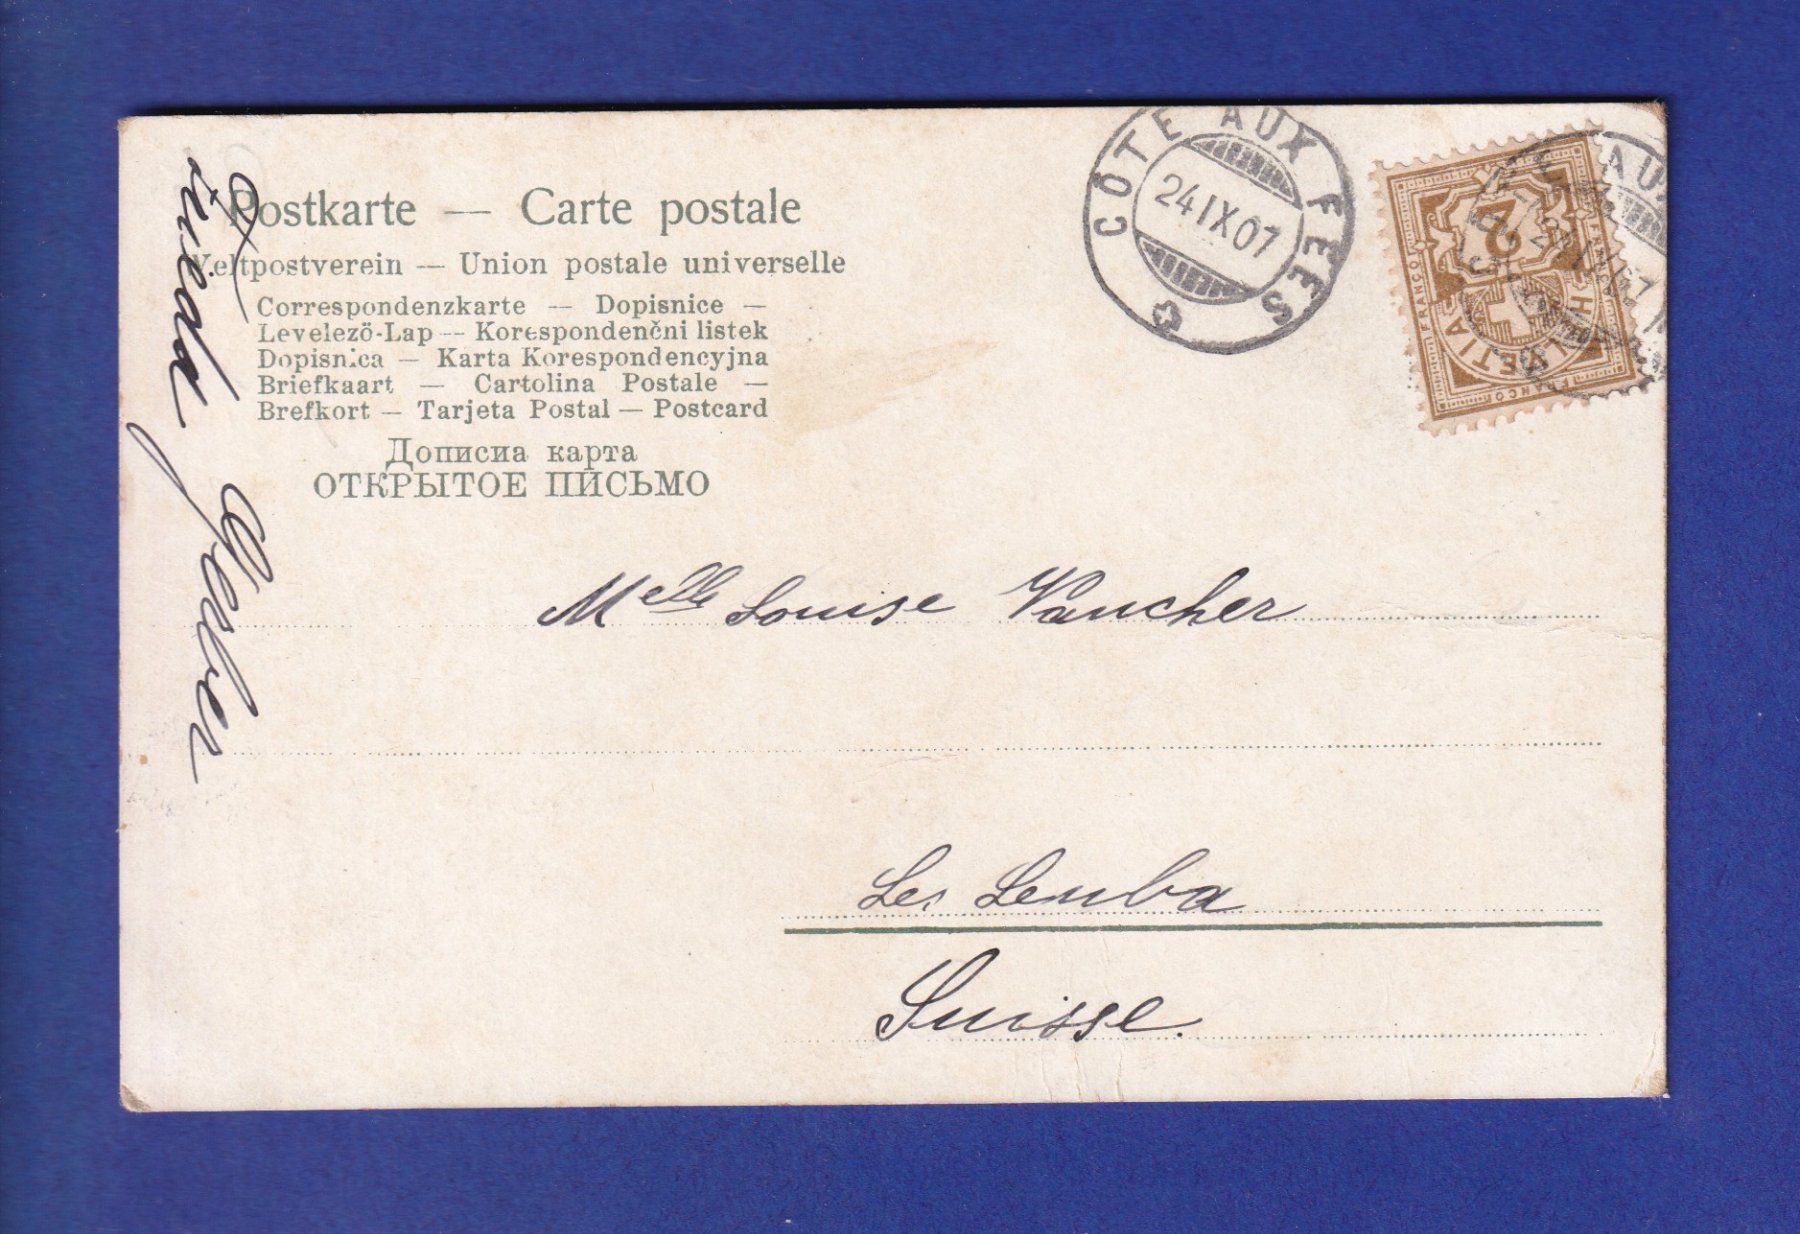 Postkarte — Carte postale
Weltpostverein — Union postale universelle
Correspondenzkarte — Dopisnice —
Levelezö-Lap — Korespondenčni listek
Dopisnica — Karta Korespondencyjna
Briefkaart — Cartolina Postale —
Brefkort — Tarjeta Postal — Postcard
Дописна карта
ОТКРЫТОЕ ПИСЬМО
CÔTE AUX FÉES
24 IX 07
2
FRANCO
HELVETIA
FRANCO
AUX
Gerber
Melle Louise Vaucher
Les Leuba
Suisse.